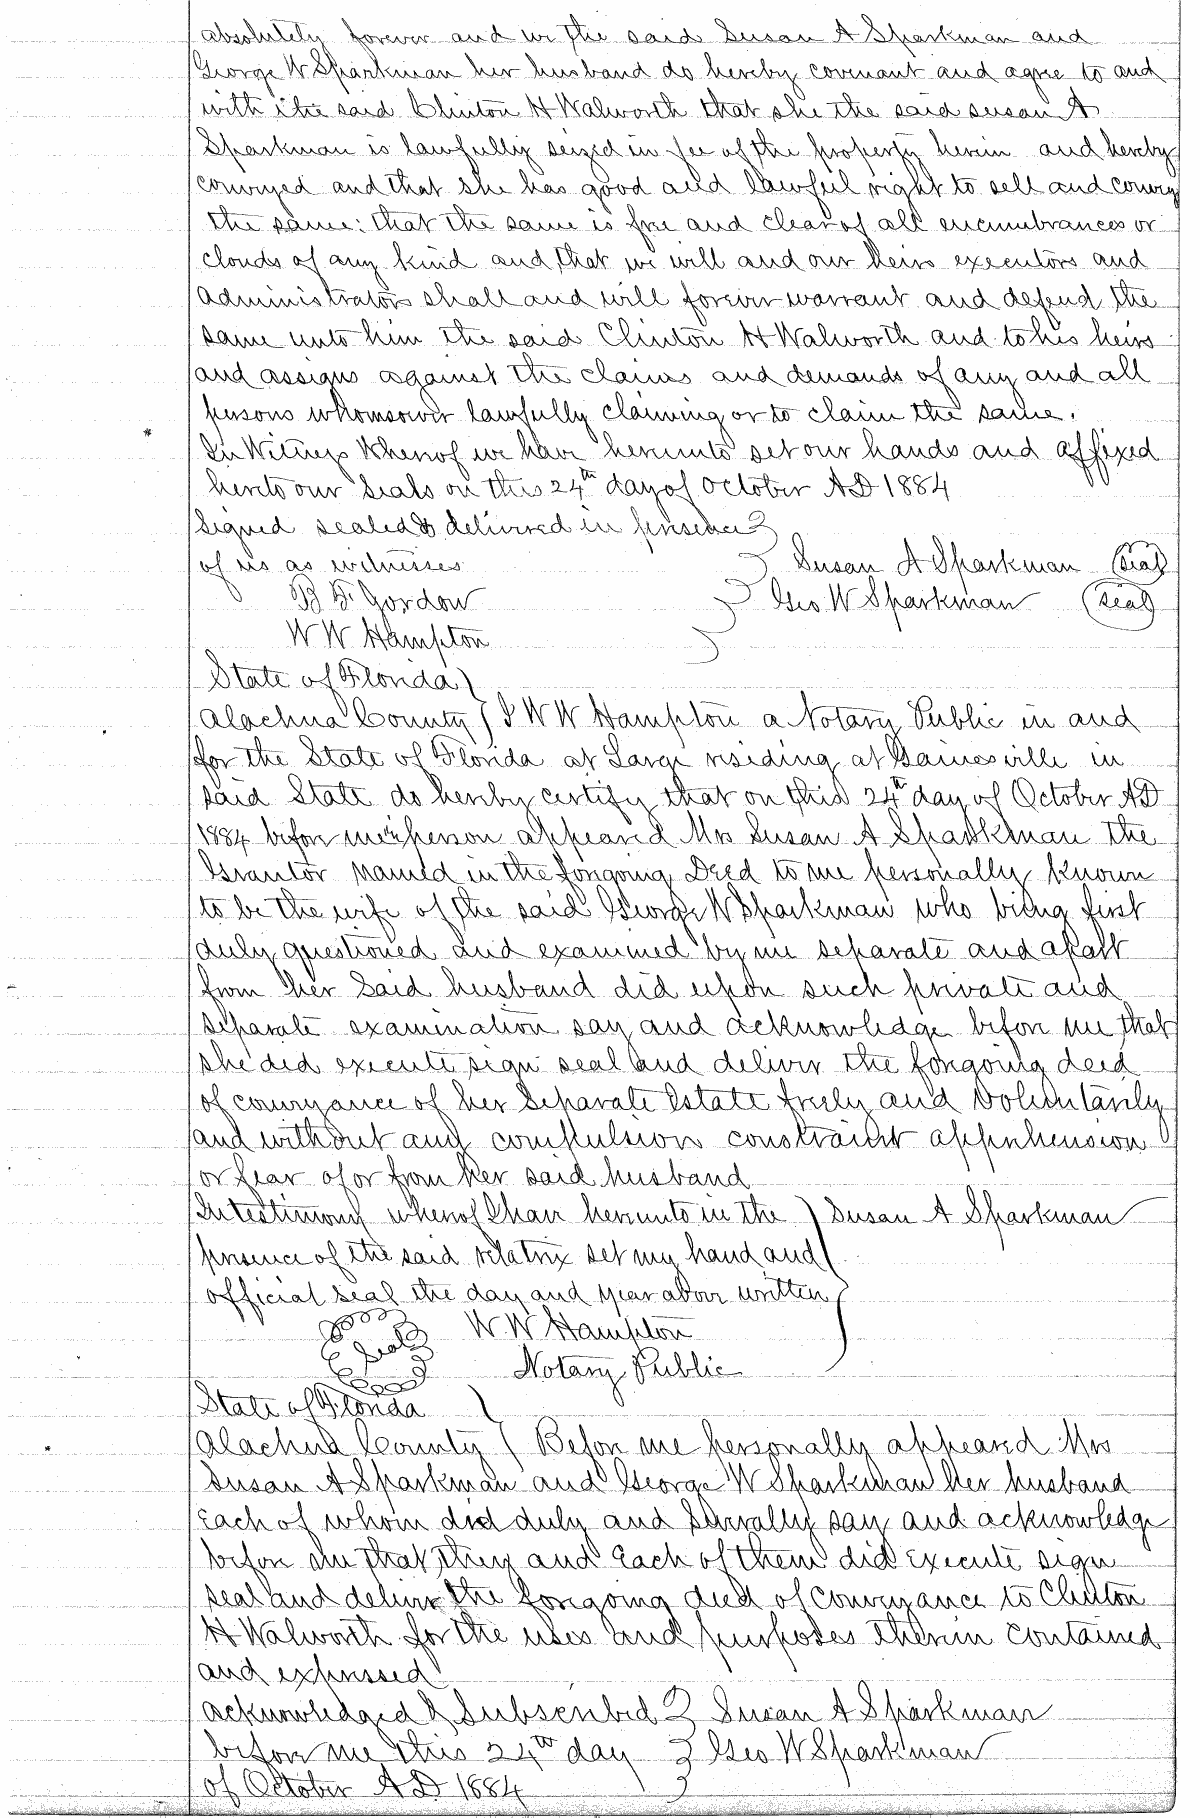 absolutely forever and we the said Susan A Sparkman and
George W Sparkman her husband do hereby covenant and agree to and
with the said Clinton H Walworth that she the said Susan A
Sparkman is lawfully seized in fee of the property herein and hereby
conveyed and that she has good and lawful right to sell and convey
the same: that the same is free and clear of all encumbrances or
clouds of any kind and that we will and our heirs executors and
administrators shall and will forever warrant and defend the
same unto him the said Clinton H Walworth and to his heirs
and assigns against the claims and demands of any and all
persons whomsoever lawfully claiming or to claim the same.
In Witness Whereof we have hereunto set our hands and affixed
hereto our seals on this 24th day of October AD 1884
Signed sealed & delivered in presence
of us as witnesses Susan A Sparkman (seal)
B F Gordon Geo W Sparkman (seal)
W W Hampton
State of Florida
Alachua County I W W Hampton a Notary Public in and
for the State of Florida at Large residing at Gainesville in
said State do hereby certify that on this 24th day of October AD
1884 before me in person appeared Mrs Susan A Sparkman the
Grantor named in the foregoing Deed to me personally known
to be the wife of the said George W Sparkman who being first
duly questioned and examined by me separate and apart
from her said husband did upon such private and
separate examination say and acknowledge before me that
she did execute sign seal and deliver the foregoing deed
of conveyance of her Separate Estate freely and Voluntarily
and without any compulsion constraint apprehension
or fear of or from her said husband
In testimony whereof I have hereunto in the Susan A Sparkman
presence of the said relatrix set my hand and
official seal the day and year above written
Seal W W Hampton
Notary Public
State of Florida
Alachua County Before me personally appeared Mrs
Susan A Sparkman and George W Sparkman her husband
Each of whom did duly and Severally say and acknowledge
before me that they and Each of them did Execute sign
seal and deliver the foregoing deed of conveyance to Clinton
H Walworth for the uses and purposes therein contained
and expressed
acknowledged & Subscribed Susan A Sparkman
before me this 24th day Geo W Sparkman
of October AD 1884